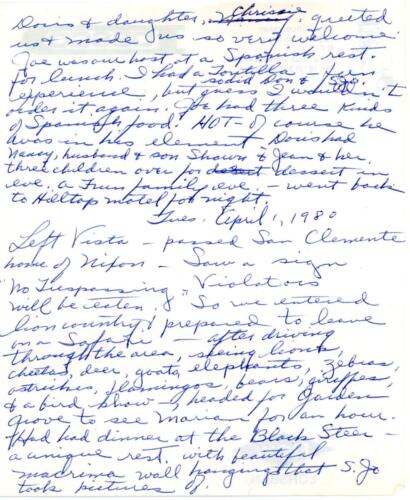 Doris & daughter, Chrissie greeted
us & made us so very welcome
Joe was our host at a Spanish rest.
for lunch. I had a Tortilla - fun
experience, but guess I wouldn't
order it again. Joe had three kinds
of Spanish food. HOT - Of course he
was in his element Doris had
Nancy, husband & son Shawn & Jean & her
three children over for dessert in
eve. a Fun family eve. - went back
to Hilltop motel for night.
Tues. April 1, 1980
Left Vista - passed San Clemente
home of Nixon - Saw a sign
"No Trespassing - Violators
will be eaten." So we entered
lion country & prepared to leave
on a Safari - after driving
through the area, seeing lions,
cheetas, deer, goats, elephants, zebras,
ostriches, flamingos, bears, giraffes,
& a bird show -, headed for Garden
grove to see Marian for an hour.
Had had dinner at the Black Steer -
a unique rest. with beautiful
macrima wall hangings that S. Jo
took pictures of.